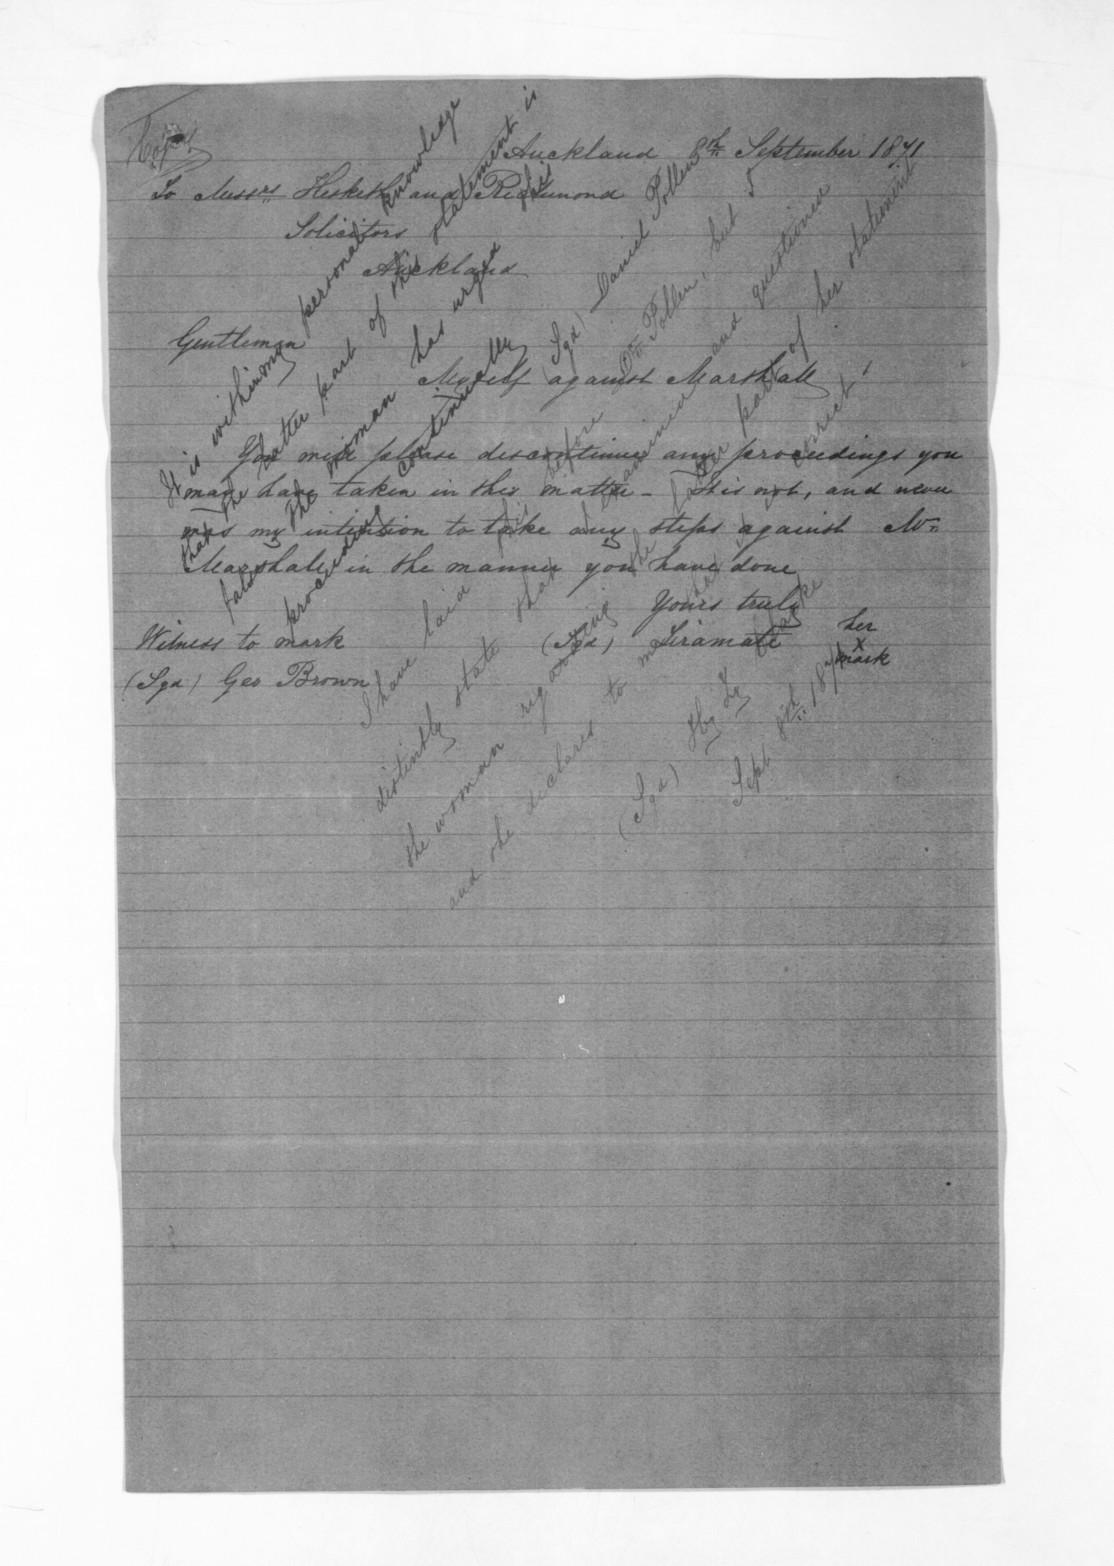 Copy
Auckland 8th September 1871
To Messrs Hesketh and Richmond
Solicitors
Auckland
Gentlemen
Myself against Marshall
You will please discontinue any proceedings you
may have taken in this matter - It is not, and never
was my intention to take any steps against Mr
Marshall in the manner you have done
Yours truly
(Sgd) Tiramate her x mark
Witness to mark
(Sgd) Geo Brown
It is within my personal knowledge
that the latter part of this statement is
false the woman has urged
proceedings continually
(Sgd) Daniel Pollen
I have laid this before Dr Pollen, but I
distinctly state that I examined and questioned
the woman regarding the part of her statement
and she declares to me that it is correct!
(Sgd)
Sept 8th 1871